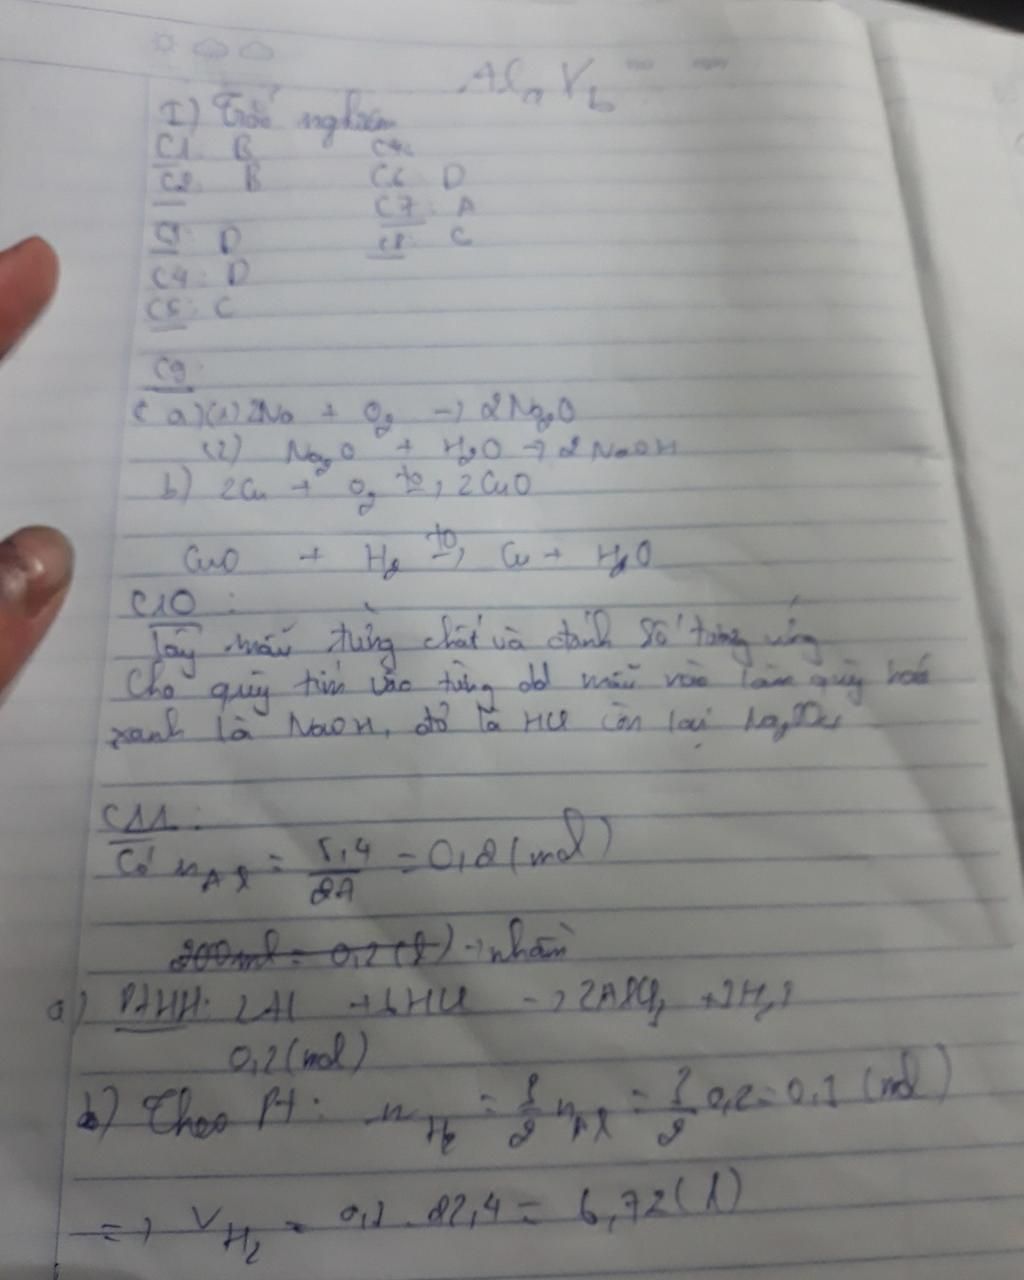 Al_a V_b
I) Trắc nghiệm
C1: B
C2: B
C3: D
C4: D
C5: C
C6: D
C7: A
C8: C
C9:
a) (1) 2Na + O2 -> 2Na2O
(2) Na2O + H2O -> 2NaOH
b) 2Cu + O2 to-> 2CuO
CuO + H2 to-> Cu + H2O
C10:
Lấy mẫu từng chất và đánh số tương ứng
Cho quỳ tím vào từng dd mẫu nào làm quỳ hoá
xanh là NaOH, đỏ là HCl còn lại
C11:
Có nAl = 5,4/27 = 0,2 (mol)
200ml = 0,2 (l) -> nhầm
a) PTHH: 2Al + 6HCl -> 2AlCl3 + 3H2
0,2 (mol)
b) Theo Pt: nH2 = 3/2 nAl = 3/2 0,2 = 0,3 (mol)
=> VH2 = 0,3 . 22,4 = 6,72 (l)